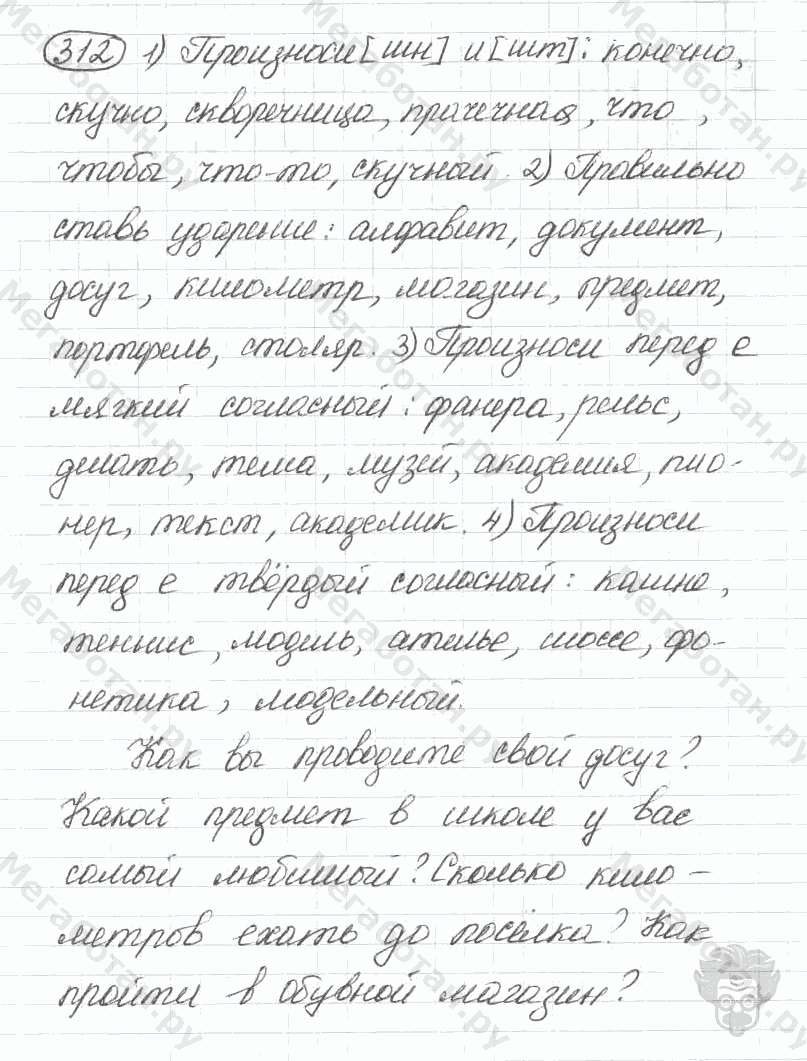 312 1) Произноси [шн] и [шт]: конечно,
скучно, скворечница, прачечная, что,
чтобы, что-то, скучный. 2) Правильно
ставь ударение: алфавит, документ,
досуг, километр, магазин, предмет,
портфель, столяр. 3) Произноси перед е
мягкий согласный: фанера, рельс,
делать, тема, музей, академия, пио-
нер, текст, академик. 4) Произноси
перед е твёрдый согласный: кашне,
теннис, модель, ателье, шоссе, фо-
нетика, модельный.
Как вы проводите свой досуг?
Какой предмет в школе у вас
самый любимый? Сколько кило-
метров ехать до посёлка? Как
пройти в обувной магазин?
Мегаботан.ру